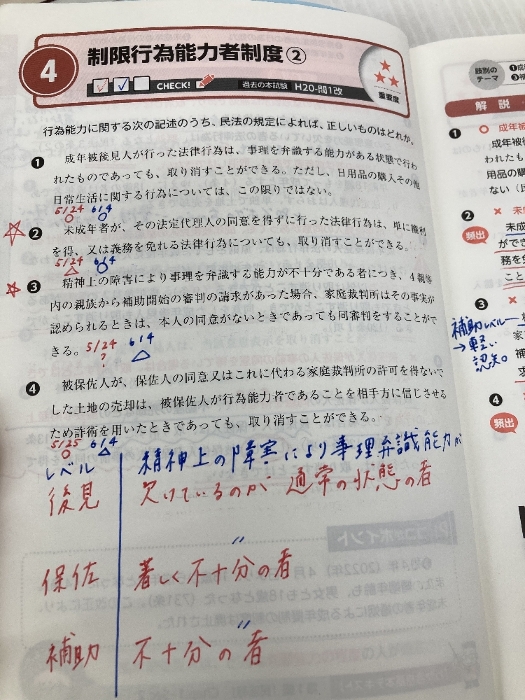 4
制限行為能力者制度②
CHECK!
過去の本試験 H20-問1改
重要度
行為能力に関する次の記述のうち、民法の規定によれば、正しいものはどれか。
❶ 成年被後見人が行った法律行為は、事理を弁識する能力がある状態で行わ
れたものであっても、取り消すことができる。ただし、日用品の購入その他
日常生活に関する行為については、この限りではない。
5/24 6/4
❷ 未成年者が、その法定代理人の同意を得ずに行った法律行為は、単に権利
を得、又は義務を免れる法律行為についても、取り消すことができる。
5/24 6/4
❸ 精神上の障害により事理を弁識する能力が不十分である者につき、4親等
内の親族から補助開始の審判の請求があった場合、家庭裁判所はその事実が
認められるときは、本人の同意がないときであっても同審判をすることがで
きる。
5/24 6/4
?
❹ 被保佐人が、保佐人の同意又はこれに代わる家庭裁判所の許可を得ないで
した土地の売却は、被保佐人が行為能力者であることを相手方に信じさせる
ため詐術を用いたときであっても、取り消すことができる。
5/25 6/4
レベル 精神上の障害により事理弁識能力が
後見 欠けているのが通常の状態の者
〃
保佐 著しく不十分の者
〃
補助 不十分の者
肢別の
テーマ
解 説
❶ ○ 成年被
成年被
われたも
用品の購
ない（民
❷ × 未
頻出
未成
ができ
務を免
こと
❸ ×
補助レベル
→軽い
認知。
❹
頻出